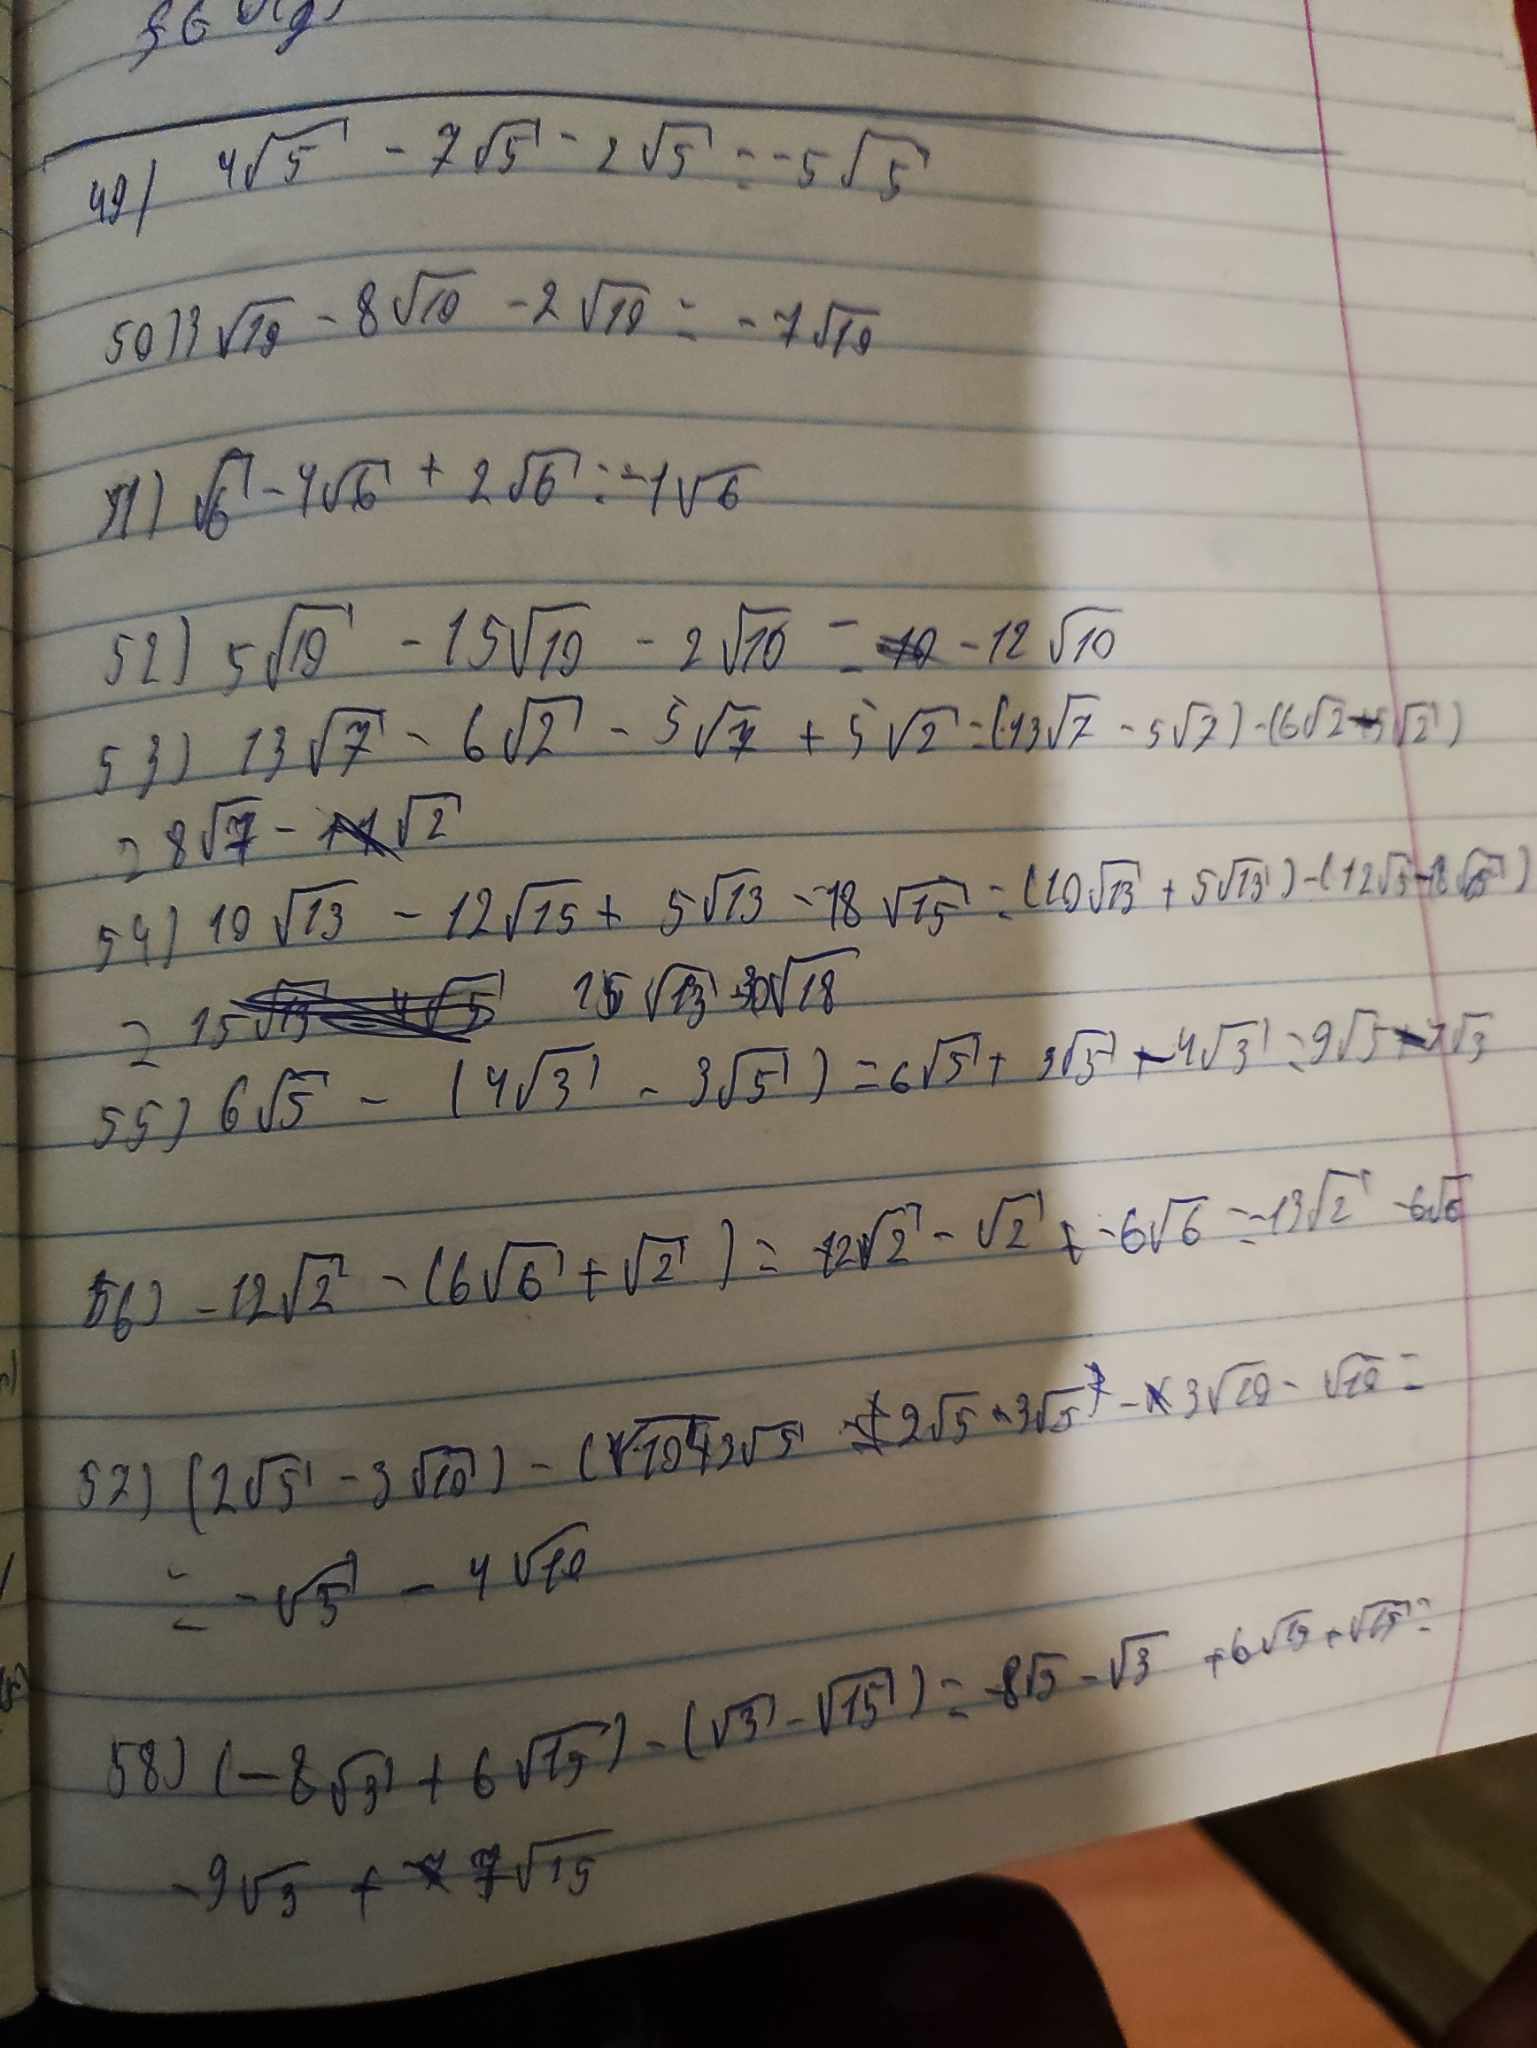 49) 4√5 - 7√5 - 2√5 = -5√5
50) 3√10 - 8√10 - 2√10 = -7√10
51) √6 - 4√6 + 2√6 = -1√6
52) 5√10 - 15√10 - 2√10 = -12√10
53) 13√7 - 6√2 - 5√7 + 5√2 = (13√7 - 5√7) - (6√2 - 5√2)
= 8√7 - √2
54) 10√13 - 12√15 + 5√13 - 18√15 = (10√13 + 5√13) - (12√15 - 18√15)
= 15√13 - 30√18
55) 6√5 - (4√3 - 3√5) = 6√5 + 3√5 - 4√3 = 9√5 - 4√3
56) -12√2 - (6√6 + √2) = -12√2 - √2 + -6√6 = -13√2 - 6√6
57) (2√5 - 3√10) - (√10 + 3√5 = 2√5 - 3√5 - 3√10 - √10 =
= -√5 - 4√10
58) (-8√3 + 6√15) - (√3 - √15) = -8√3 - √3 + 6√15 + √15 =
-9√3 + 7√15